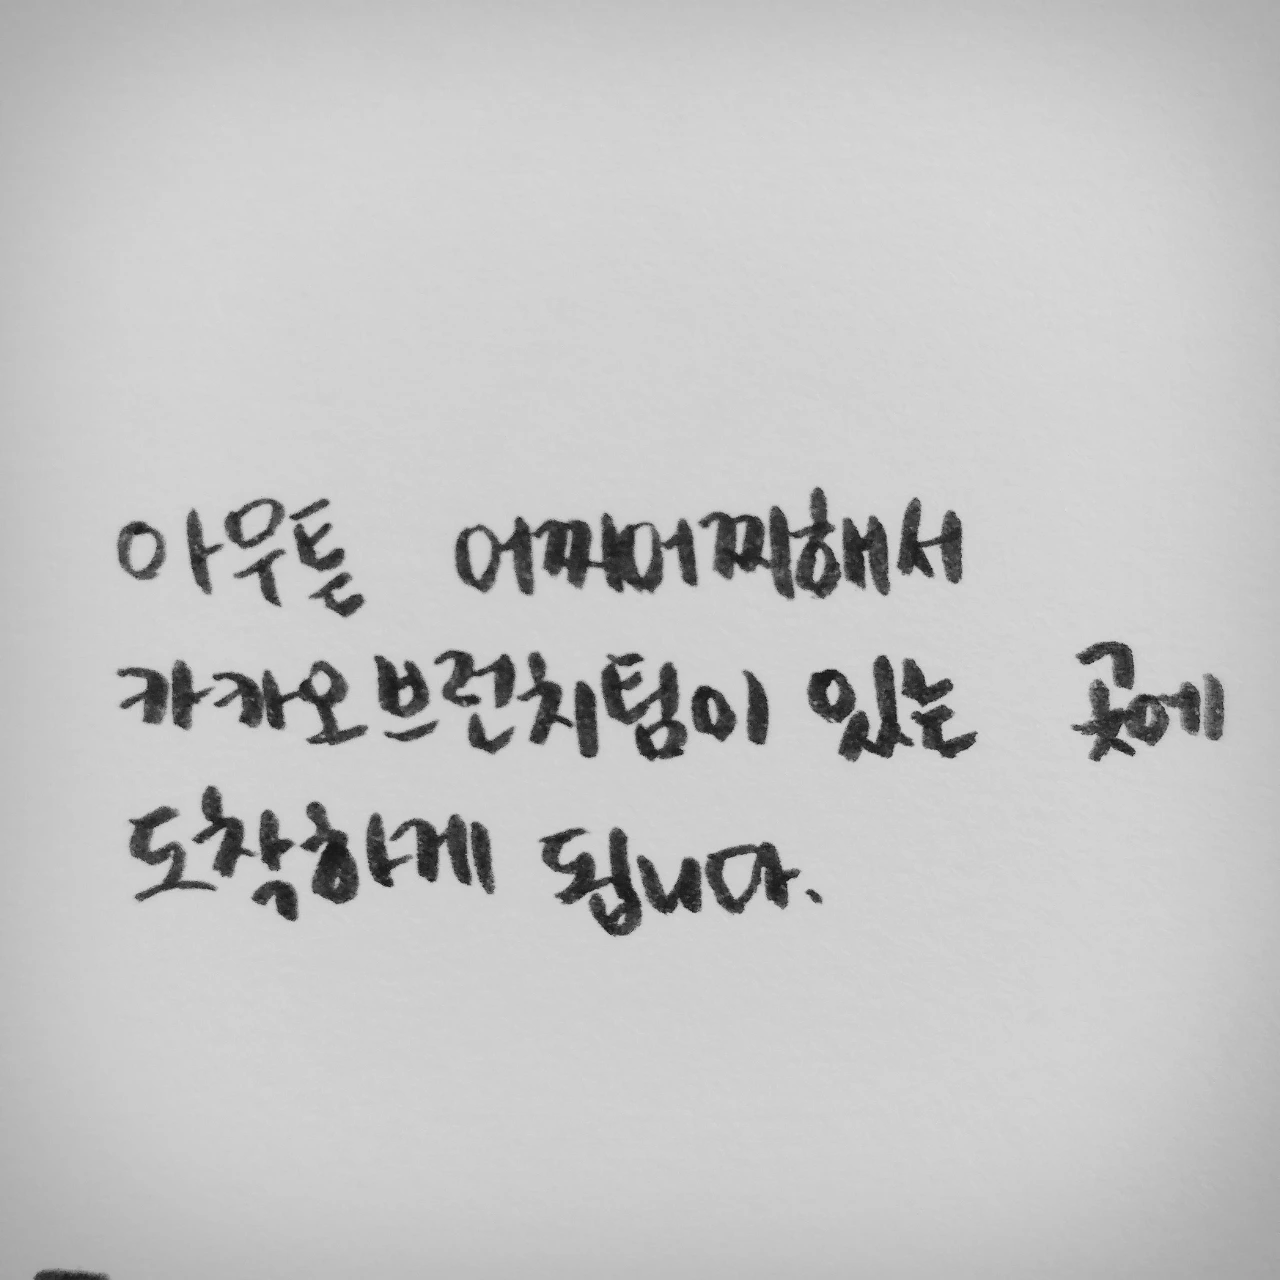 아우튼 어찌어찌해서
카카오브런치팀이 있는 곳에
도착하게 됩니다.